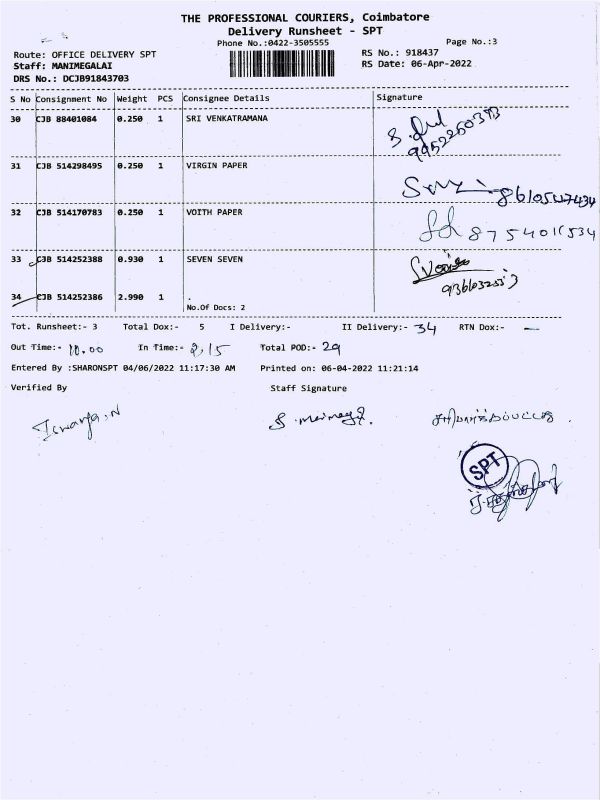 THE PROFESSIONAL COURIERS, Coimbatore
Delivery Runsheet - SPT
Phone No.:0422-3505555 Page No.:3
Route: OFFICE DELIVERY SPT RS No.: 918437
Staff: MANIMEGALAI RS Date: 06-Apr-2022
DRS No.: DCJB91843703
S No Consignment No Weight PCS Consignee Details Signature
30 CJB 88401084 0.250 1 SRI VENKATRAMANA
9952260393
31 CJB 514298495 0.250 1 VIRGIN PAPER
8610547434
32 CJB 514170783 0.250 1 VOITH PAPER
8754011534
33 CJB 514252388 0.930 1 SEVEN SEVEN
34 CJB 514252386 2.990 1 .
No.Of Docs: 2
Tot. Runsheet:- 3 Total Dox:- 5 I Delivery:- II Delivery:- 34 RTN Dox:- —
Out Time:- 10.00 In Time:- 2.15 Total POD:- 29
Entered By :SHARONSPT 04/06/2022 11:17:30 AM Printed on: 06-04-2022 11:21:14
Verified By Staff Signature
SPT